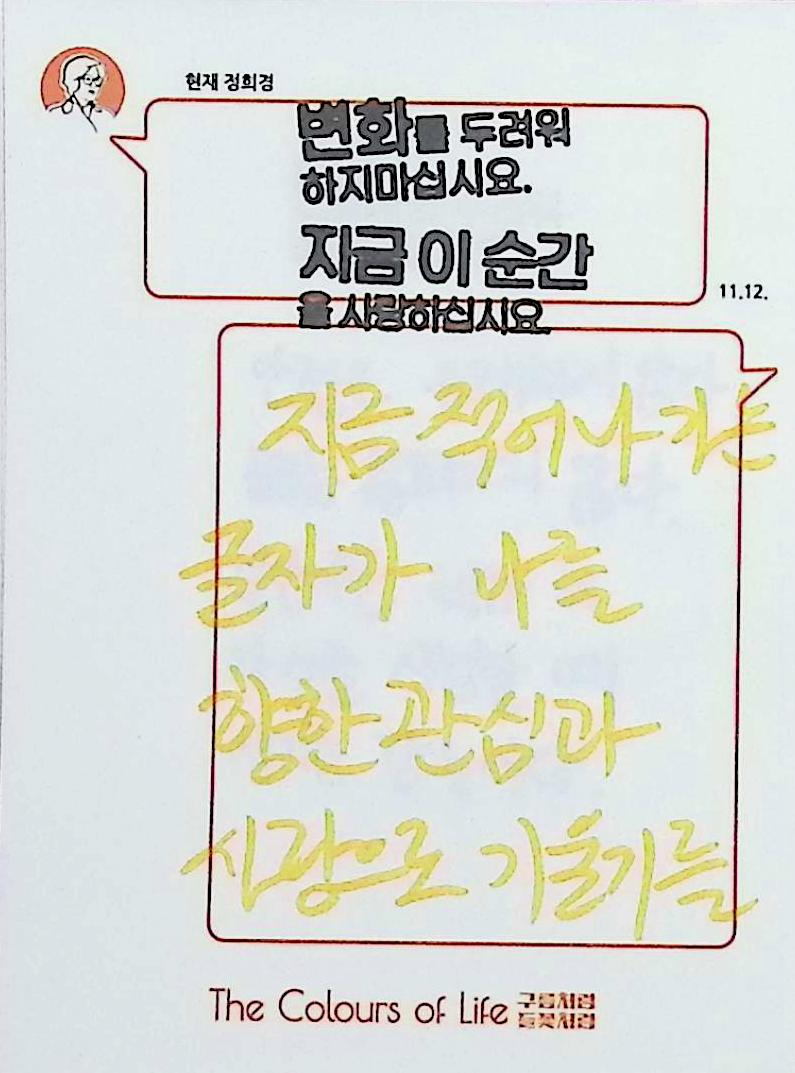 현재 정희경
변화를 두려워
하지마십시요.
지금 이 순간
을 사랑하십시요
11.12.
지금 적어나가는
글자가 나를
향한 관심과
사랑으로 기울기를
The Colours of Life 구름처럼
들꽃처럼